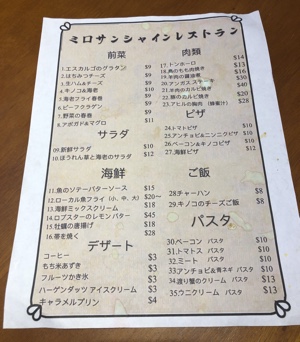 ミロサンシャインレストラン
前菜
1.エスカルゴのグラタン $7
2.はちみつチーズ $7
3.生ハム&チーズ $7
4.キノコ&海老 $10
5.海老フライ春巻 $7
6.ビーフクラゲン $7
7.野菜の春巻 $7
8.アボガド&マグロ $11
サラダ
09.新鮮サラダ $10
10.ほうれん草と海老のサラダ $12
海鮮
11.魚のソテーバターソース $15
12.ローカル魚フライ (小、中、大) $20~
13.海鮮ミックスクリーム $18
14.ロブスターのレモンバター $45
15.牡蠣の唐揚げ $18
16.帯を焼く $28
デザート
コーヒー $3
もち米あずき $3
フルーツかき氷 $3
ハーゲンダッツ アイスクリーム $3
キャラメルプリン $4
肉類
17.トンホーロ $14
18.鳥のもも肉焼き $13
19.羊肉の醤油煮 $16
20.アンガス ステーキ $30
21.羊肉のカルビ焼き $16
22.豚の山ルビ焼き
23.アヒルの胸肉 (蜂蜜汁) $28
ピザ
24.トマトピザ $10
25.アンチョビ&ニンニクピザ $10
26.ベーコン&キノコピザ $10
27.海鮮ピザ $12
ご飯
28.チャーハン $8
29.キノコのチーズご飯 $8
パスタ
30.ベーコン パスタ $10
31.トマトス パスタ $10
32.ミート パスタ $10
33.アンチョビ&青ネギ パスタ $10
34.渡り蟹のクリーム パスタ $13
35.ウニクリーム パスタ $13